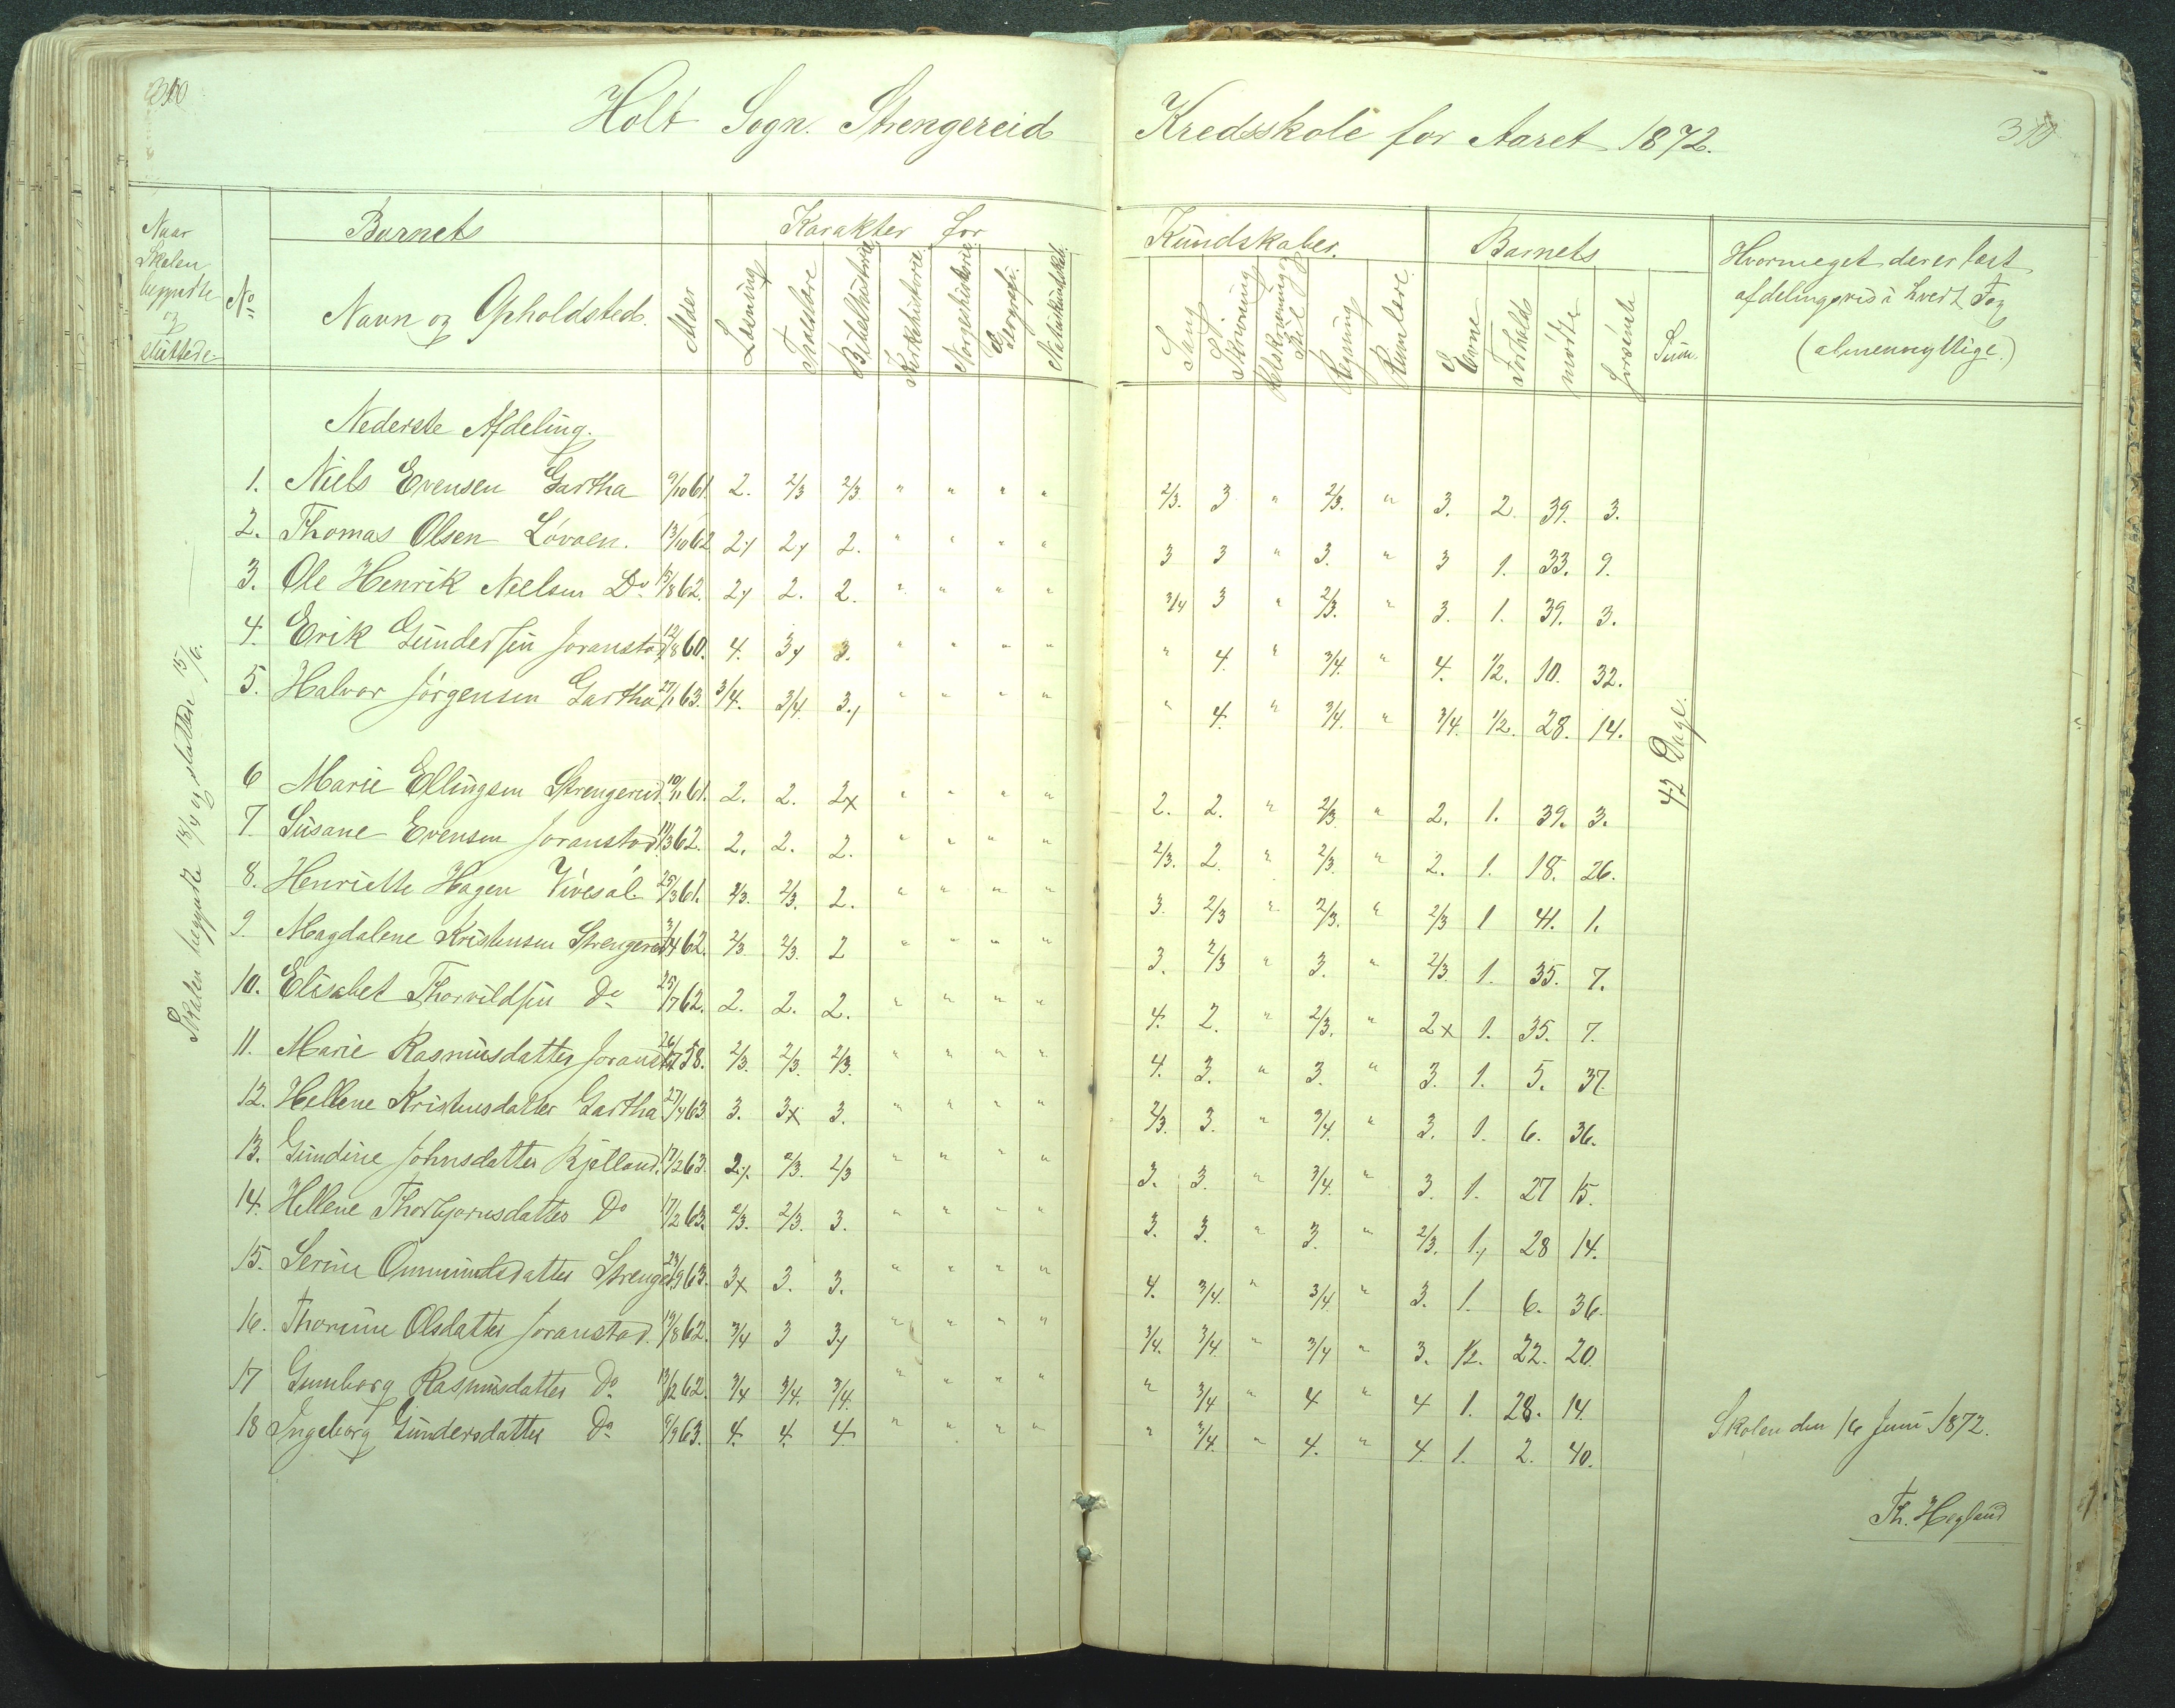 Holt Sogn. Strengereid Kredsskole for Aaret 1872.
Naar Skolen begyndte og sluttede
No
Barnets
Navn og Opholdsted.
Alder
Karakter for
Læsning
Troeslære
Bibelhistorie
Kirkehistorie
Norgeshistorie
Geografi
Naturkundskab
Kundskaber.
Sang
Skrivning
Regning
Rumlære.
Barnets
Evne
Forhold
mødte
forsømte
Sum.
Hvormeget der er læst
afdelingsvis i hvert Fag
(almennyttige.)
Skolen begyndte 18/4 og sluttede 15/6.
42 Dage.
Nederste Afdeling.
1. Niels Evensen Gartha 9/10 61. 2. 2/3 2/3 " " " " 2/3. 3 " 2/3. " 3. 2. 39. 3.
2. Thomas Olsen Løvaen. 13/10 62 2y 2y 2. " " " " 3 3 " 3. " 3 1. 33. 9.
3. Ole Henrik Nielsen Do 15/8 62. 2y 2. 2. " " " " 3/4 3 " 2/3. " 3. 1. 39. 3.
4. Erik Gundersen Joranstad 12/8 60. 4. 3y 3. " " " " " 4. " 3/4. " 4. 1/2. 10. 32.
5. Halvor Jørgensen Gartha 27/1 63. 3/4. 3/4. 3y " " " " " 4. " 3/4. " 3/4. 1/2. 28. 14.
6 Marie Ellingsen Strengereid. 10/11 61. 2. 2. 2x " " " " 2. 2. " 2/3. " 2. 1. 39. 3.
7. Susane Evensen Joranstad 11/3 62. 2. 2. 2. " " " " 2/3. 2. " 2/3. " 2. 1. 18. 26.
8. Henriette Hagen 25/3 61. 2/3. 2/3. 2. " " " " 3. 2/3 " 2/3. " 2/3 1 41. 1.
9. Magdalene Kristensen Strengereid 3/4 62. 2/3. 2/3. 2 " " " " 3. 2/3 " 3. " 2/3. 1. 35. 7.
10. Elisabet Thorvildsen Do 25/7 62. 2. 2. 2. " " " " 4. 2. " 2/3. " 2x 1. 35. 7.
11. Marie Rasmusdatter Joranst. 26/7 58. 2/3. 2/3. 2/3. " " " " 4. 3. " 3. " 3. 1. 5. 37
12. Hellene Kristensdatter Gartha 27/4 63 3. 3x 3. " " " " 2/3. 3. " 3/4. " 3. 1. 6. 36.
13. Gundine Johnsdatter Kjølland. 17/2 63. 2y. 2/3. 2/3 " " " " 3. 3. " 3/4. " 3. 1. 27 15.
14. Hellene Thorbjørnsdatter Do 17/2 63. 2/3. 2/3. 3. " " " " 3. 3. " 3. " 2/3. 1y 28 14.
15. Serine Ommundsdatter Strenger. 23/9 63. 3x 3. 3. " " " " 4. 3/4. " 3/4. " 3. 1. 6. 36.
16. Thorine Olsdatter Joranstad. 19/8 62. 3/4 3 3y " " " " 3/4. 3/4. " 3/4 " 3. 1/2. 22. 20.
17 Gunborg Rasmusdatter Do 13/12 62. 3/4 3/4. 3/4. " " " " " 3/4 " 4 " 4 1. 28. 14.
18 Ingeborg Gundersdatter Do 9/9 63. 4. 4. 4. " " " " " 3/4. " 4. " 4. 1. 2. 40.
Skolen den 16 Juni 1872.
Th. Hegland